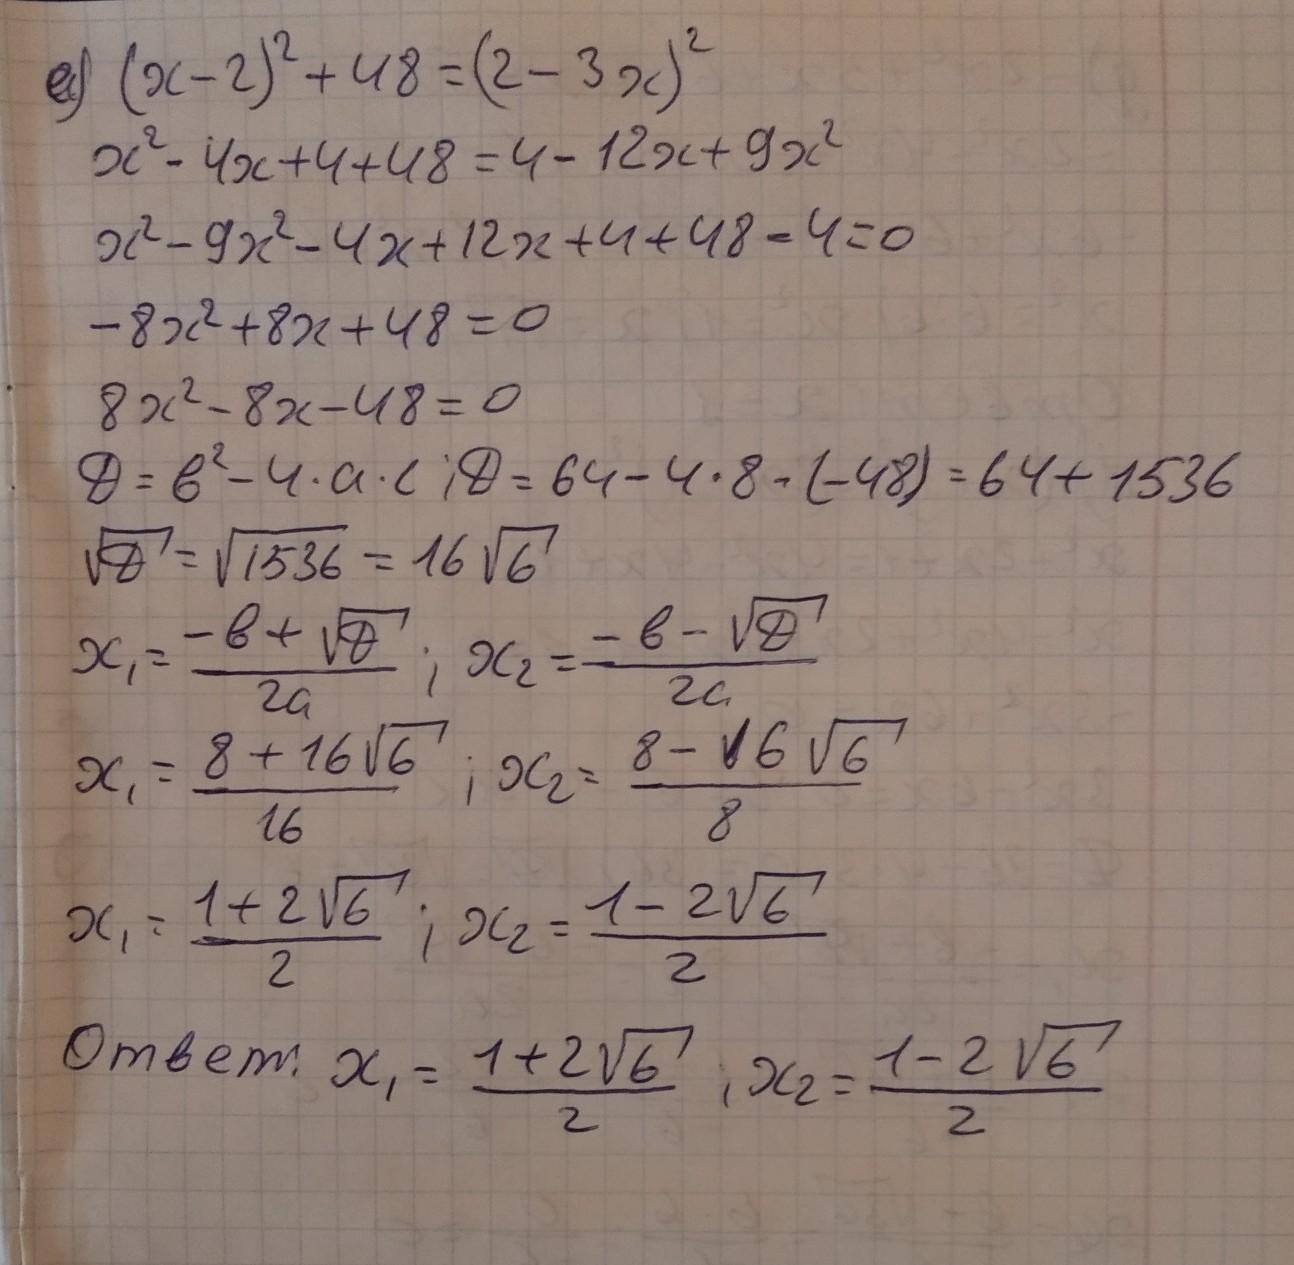 е) (x-2)² + 48 = (2-3x)²
x² - 4x + 4 + 48 = 4 - 12x + 9x²
x² - 9x² - 4x + 12x + 4 + 48 - 4 = 0
-8x² + 8x + 48 = 0
8x² - 8x - 48 = 0
D = b² - 4·a·c ; D = 64 - 4·8·(-48) = 64 + 1536
√D = √1536 = 16√6
x₁ = (-b + √D)/2a ; x₂ = (-b - √D)/2a
x₁ = (8 + 16√6)/16 ; x₂ = (8 - 16√6)/8
x₁ = (1 + 2√6)/2 ; x₂ = (1 - 2√6)/2
Ответ: x₁ = (1 + 2√6)/2 ; x₂ = (1 - 2√6)/2